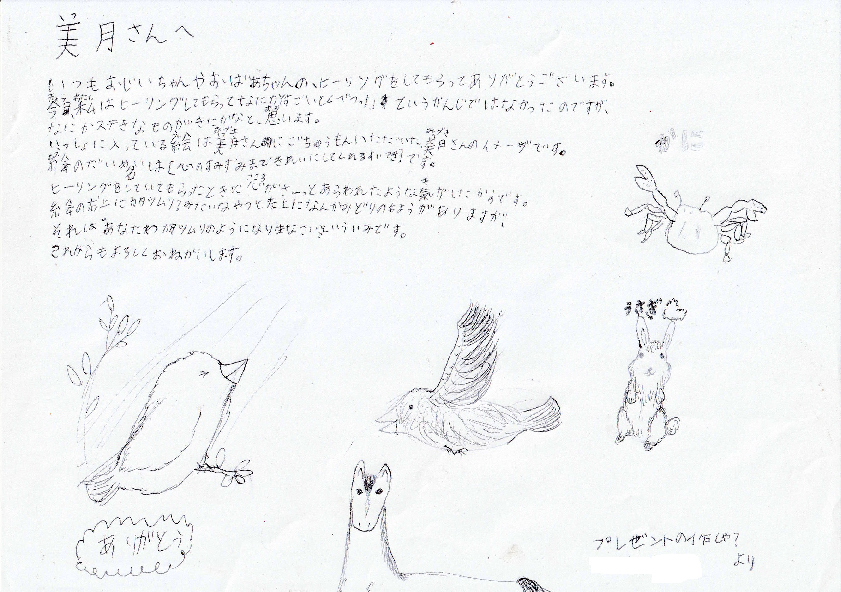 美月さんへ
いつもおじいちゃんやおばあちゃんの、ヒーリングをしてもらってありがとうございます。
はヒーリングしてもらってなにかがすごいというかんじではなかったのですが、
なにかステキなものがきたかなと、思います。
いっしょに入っている絵は美月さんにごちゅうもんいただいた、美月さんのイメージです。
絵のだいめいは「心のすみずみまできれいにしてくれる です。
ヒーリングをしていてもらったときに心がさーっとあらわれたような気がしたからです。
絵の右上にカタツムリみたいなやつと左上になんかみどりのもようがありますが、
それはあなたわカタツムリのようになりなさいといういみです。
これからもよろしくおねがいします。
うさぎ
ありがとう
プレゼントの作しゃ?
より